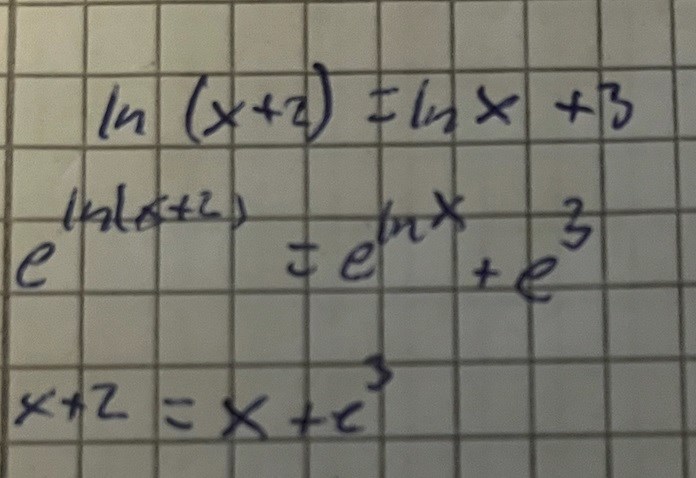 ln (x+2) = ln x + 3
e^ln(x+2) = e^ln x + e^3
x+2 = x + e^3